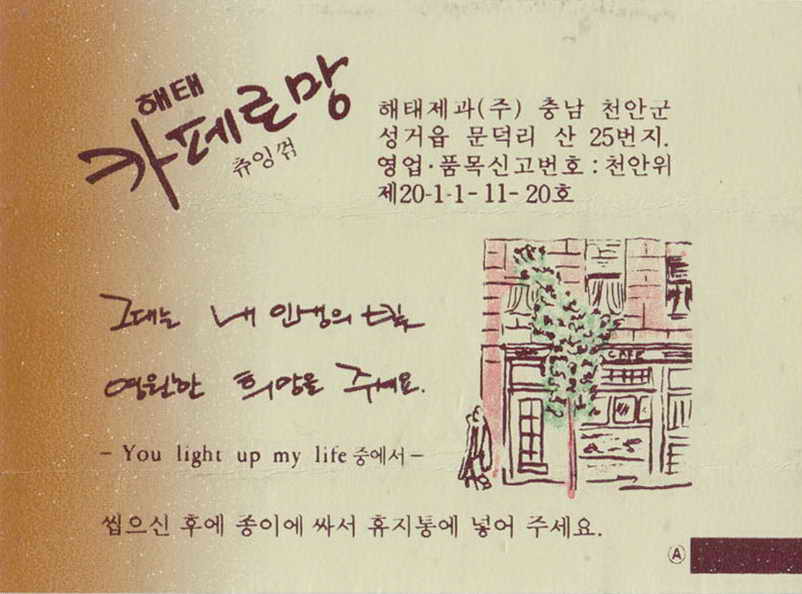 해태
카페로망
츄잉껌
해태제과(주) 충남 천안군
성거읍 문덕리 산 25번지.
영업·품목신고번호:천안위
제20-1-1-11-20호
그대는 내 인생의 빛
영원한 희망을 주세요.
CAFE
- You light up my life 중에서 -
씹으신 후에 종이에 싸서 휴지통에 넣어 주세요.
Ⓐ